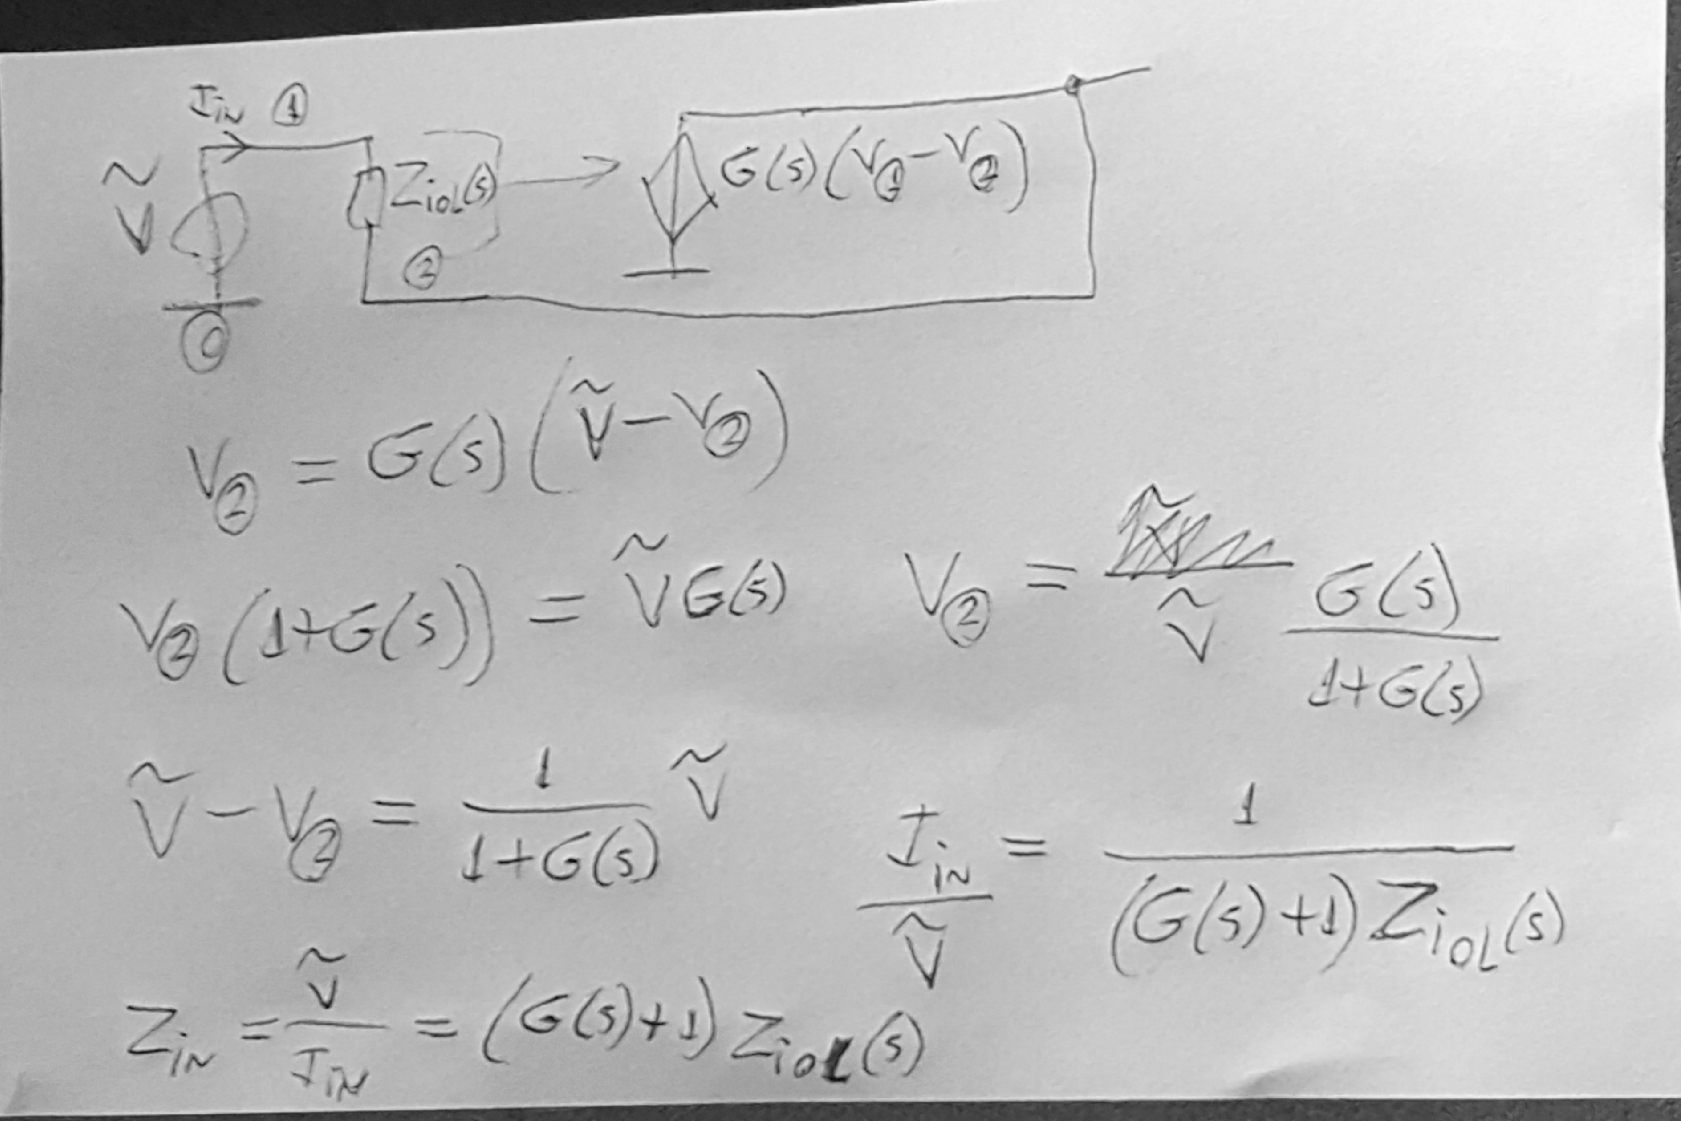 I_IN ①
Ṽ Z_iOL(s) G(s)(V_① - V_②)
②
⓪
V_② = G(s)(Ṽ - V_②)
V_②(1+G(s)) = ṼG(s)
V_② = Ṽ G(s)/(1+G(s))
Ṽ - V_② = 1/(1+G(s)) Ṽ
I_iN/Ṽ = 1/((G(s)+1) Z_iOL(s))
Z_iN = Ṽ/I_iN = (G(s)+1) Z_iOL(s)